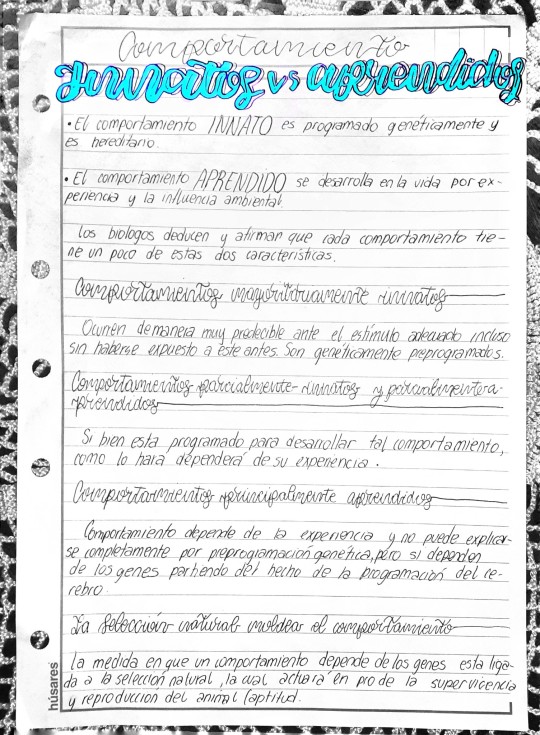 Comportamiento
Innatos vs aprendidos
• El comportamiento INNATO es programado genéticamente y
es hereditario.
• El comportamiento APRENDIDO se desarrolla en la vida por ex-
periencia y la influencia ambiental.
Los biologos deducen y afirman que cada comportamiento tie-
ne un poco de estas dos características.
Comportamientos mayoritariamente innatos
Ocurren de manera muy predecible ante el estímulo adecuado incluso
sin haberse expuesto a éste antes. Son genéticamente preprogramados.
Comportamientos parcialmente innatos y parcialmente a-
prendidos
Si bien esta programado para desarrollar tal comportamiento,
como lo hará dependerá de su experiencia.
Comportamientos principalmente aprendidos
Comportamiento depende de la experiencia y no puede explicar-
se completamente por preprogramación genética, pero si dependen
de los genes partiendo del hecho de la programación del ce-
rebro.
La selección natural moldea el comportamiento
La medida en que un comportamiento depende de los genes esta liga-
da a la selección natural, la cual actuará en pro de la supervicencia
y reproducción del animal (aptitud.
húsares